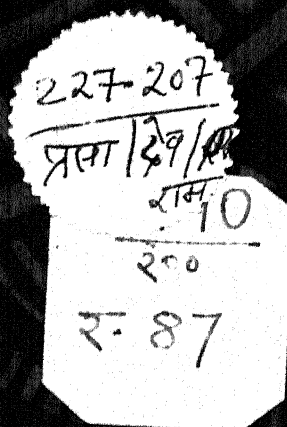 227-207
प्रसा/देव/
राम. 10
२००
र. 87